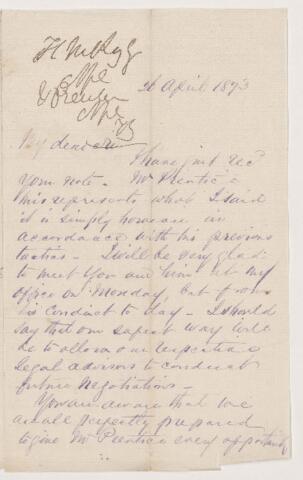 26 April 1873
My dear
I have just rec^d
your note. Mr Prentice
misrepresents what I said
it is simply however in
accordance with his previous
tactics. I will be very glad
to meet you and him at my
office on Monday, but from
his conduct to day - I should
say that our safest way will
be to allow our respective
legal advisors to conduct
future negotiations -
You are aware that we
are all perfectly prepared
to give Mr Prentice every opportunity